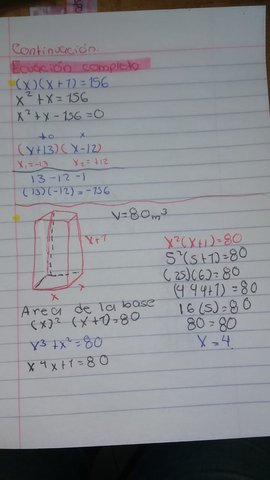 Continuación
Ecuación completa
(x)(x+1)=156
x²+x=156
x²+x-156=0
(x+13)(x-12)
x₁=-13 x₂=+12
13-12-1
(13)(-12)=-156
V=80m³
x+1
x
x
Area de la base
(x)² (x+1)=80
x³+x²=80
x4x+1=80
x²(x+1)=80
5²(5+1)=80
(25)(6)=80
(4 4 4+1)=80
16(5)=80
80=80
x=4